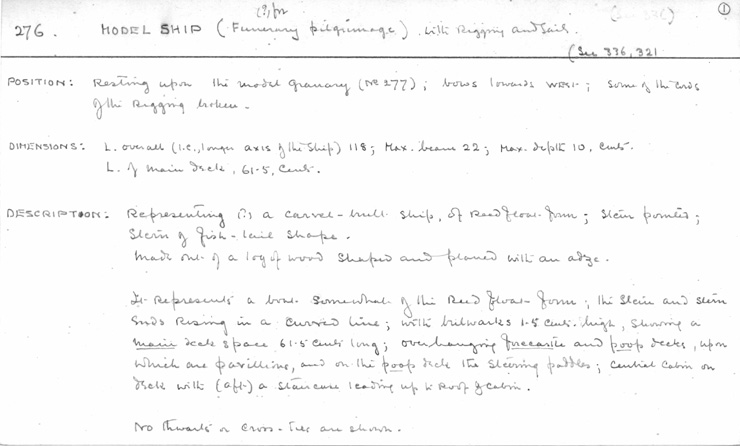 (?) for
276. MODEL SHIP (Funerary pilgrimage) with Rigging and Sail. ①
(See 336, 321
POSITION: Resting upon the model granary (Nº 277); bows towards WEST; some of the cords
of the Rigging broken.
DIMENSIONS: L. overall (i.e., longer axis of the ship) 118; Max. beam 22; Max. depth 10, cents.
L. of main deck, 61.5, cents.
DESCRIPTION: Representing (?) a carvel-built ship, of Reed float-form; stem pointed;
stern of fish-tail shape.
Made out of a log of wood shaped and planed with an adze.
It represents a boat somewhat of the Reed float-form; the stem and stern
ends Rising in a curved line; with bulwarks 1.5 cents. high, showing a
main deck space 61.5 cents long; overhanging forecastle and poop decks, upon
which are pavilions, and on the poop deck the steering paddles; central cabin on
deck with (aft) a staircase leading up to Roof of cabin.
No thwarts or cross-ties are shown.